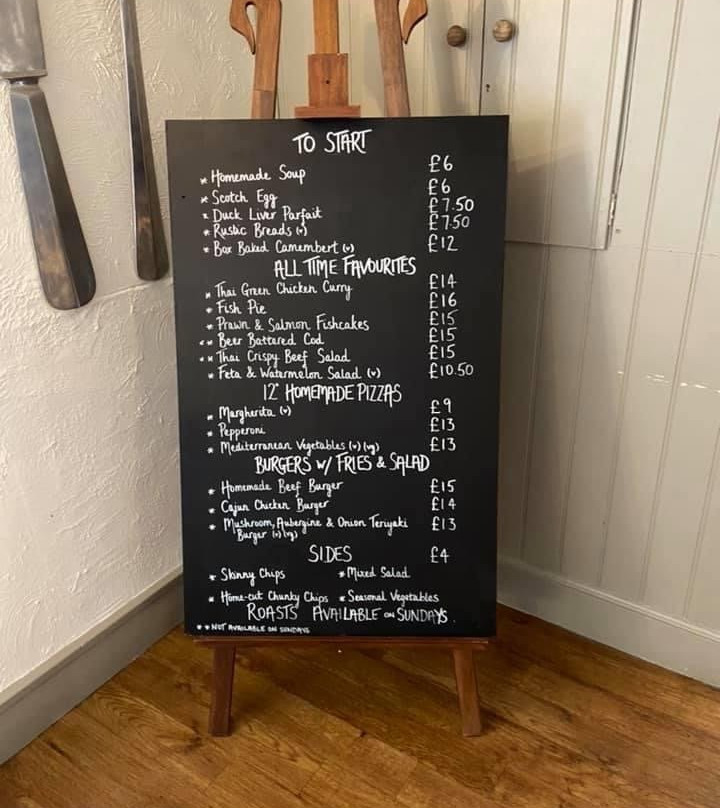 TO START
* Homemade Soup £6
* Scotch Egg £6
* Duck Liver Parfait £7.50
* Rustic Breads (v) £7.50
* Box Baked Camembert (v) £12
ALL TIME FAVOURITES
* Thai Green Chicken Curry £14
* Fish Pie £16
* Prawn & Salmon Fishcakes £15
** Beer Battered Cod £15
** Thai Crispy Beef Salad £15
* Feta & Watermelon Salad (v) £10.50
12" HOMEMADE PIZZAS
* Margherita (v) £9
* Pepperoni £13
* Mediterranean Vegetables (v) (vg) £13
BURGERS w/ FRIES & SALAD
* Homemade Beef Burger £15
* Cajun Chicken Burger £14
* Mushroom, Aubergine & Onion Teriyaki £13
Burger (v) (vg)
SIDES £4
* Skinny Chips * Mixed Salad
* Home-cut Chunky Chips * Seasonal Vegetables
ROASTS AVAILABLE ON SUNDAYS
** NOT AVAILABLE ON SUNDAYS